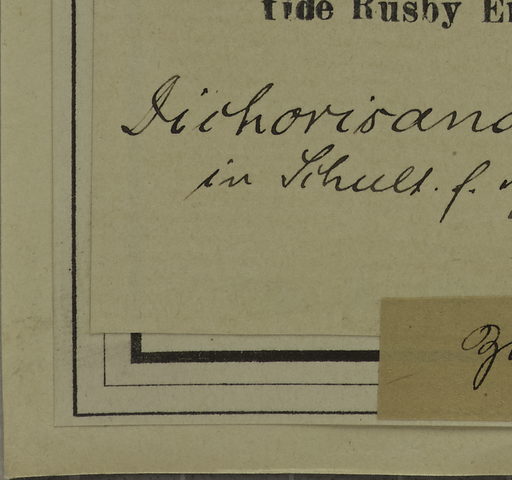 tide Rusby E
Dichorisand
in Schult. f.